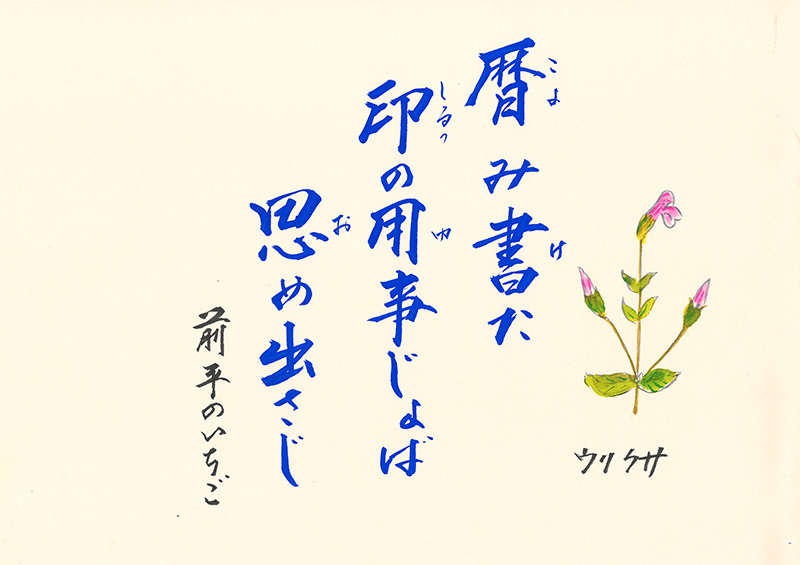 暦み書た
こよ
け
印の用事じょば
しるっ
ゆ
思め出さじ
お
前平のいちご
ウリクサ